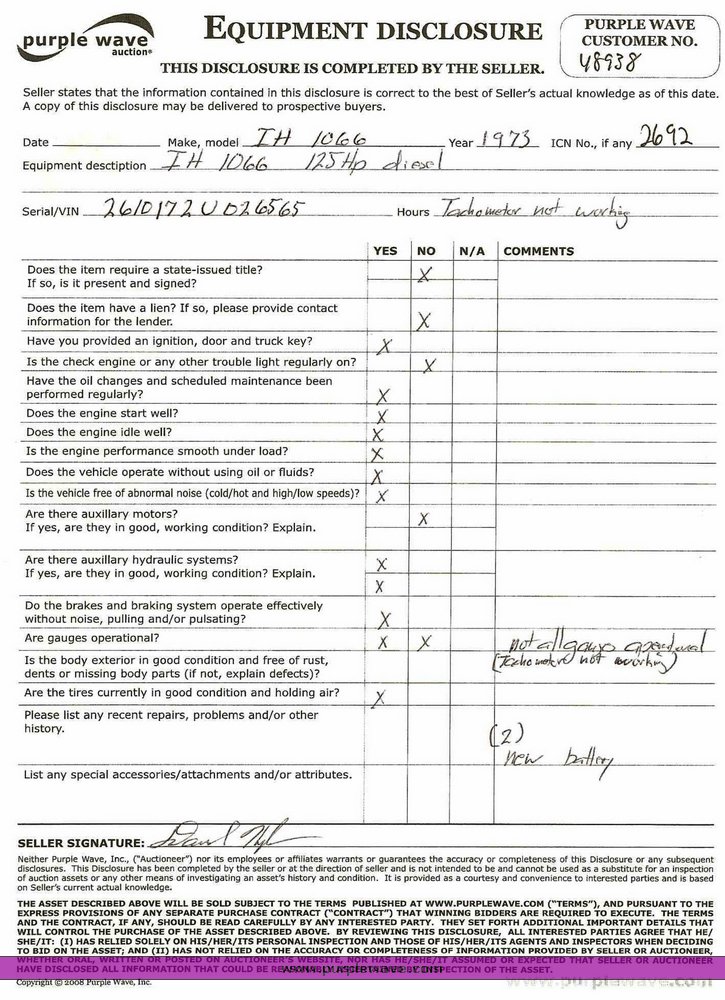 purple wave
auction®
EQUIPMENT DISCLOSURE
THIS DISCLOSURE IS COMPLETED BY THE SELLER.
PURPLE WAVE
CUSTOMER NO.
48938
Seller states that the information contained in this disclosure is correct to the best of Seller's actual knowledge as of this date.
A copy of this disclosure may be delivered to prospective buyers.
Date Make, model IH 1066 Year 1973 ICN No., if any 2692
Equipment desctiption IH 1066 125Hp diesel
Serial/VIN 2610172U026565 Hours Tachometor not working
YES NO N/A COMMENTS
Does the item require a state-issued title? X
If so, is it present and signed?
Does the item have a lien? If so, please provide contact
information for the lender. X
Have you provided an ignition, door and truck key? X
Is the check engine or any other trouble light regularly on? X
Have the oil changes and scheduled maintenance been
performed regularly? X
Does the engine start well? X
Does the engine idle well? X
Is the engine performance smooth under load? X
Does the vehicle operate without using oil or fluids? X
Is the vehicle free of abnormal noise (cold/hot and high/low speeds)? X
Are there auxillary motors? X
If yes, are they in good, working condition? Explain.
Are there auxillary hydraulic systems? X
If yes, are they in good, working condition? Explain. X
Do the brakes and braking system operate effectively
without noise, pulling and/or pulsating? X
Are gauges operational? X X not all
Is the body exterior in good condition and free of rust, (Tachometor not working)
dents or missing body parts (if not, explain defects)?
Are the tires currently in good condition and holding air? X
Please list any recent repairs, problems and/or other
history. (2)
new battery
List any special accessories/attachments and/or attributes.
SELLER SIGNATURE:
Neither Purple Wave, Inc., ("Auctioneer") nor its employees or affiliates warrants or guarantees the accuracy or completeness of this Disclosure or any subsequent
disclosures. This Disclosure has been completed by the seller or at the direction of seller and is not intended to be and cannot be used as a substitute for an inspection
of auction assets or any other means of investigating an asset's history and condition. It is provided as a courtesy and convenience to interested parties and is based
on Seller's current actual knowledge.
THE ASSET DESCRIBED ABOVE WILL BE SOLD SUBJECT TO THE TERMS PUBLISHED AT WWW.PURPLEWAVE.COM ("TERMS"), AND PURSUANT TO THE
EXPRESS PROVISIONS OF ANY SEPARATE PURCHASE CONTRACT ("CONTRACT") THAT WINNING BIDDERS ARE REQUIRED TO EXECUTE. THE TERMS
AND THE CONTRACT, IF ANY, SHOULD BE READ CAREFULLY BY ANY INTERESTED PARTY. THEY SET FORTH ADDITIONAL IMPORTANT DETAILS THAT
WILL CONTROL THE PURCHASE OF THE ASSET DESCRIBED ABOVE. BY REVIEWING THIS DISCLOSURE, ALL INTERESTED PARTIES AGREE THAT HE/
SHE/IT: (I) HAS RELIED SOLELY ON HIS/HER/ITS PERSONAL INSPECTION AND THOSE OF HIS/HER/ITS AGENTS AND INSPECTORS WHEN DECIDING
TO BID ON THE ASSET; AND (II) HAS NOT RELIED ON THE ACCURACY OR COMPLETENESS OF INFORMATION PROVIDED BY SELLER OR AUCTIONEER,
WHETHER ORAL, WRITTEN OR POSTED ON AUCTIONEER'S WEBSITE, NOR HAS HE/SHE/IT ASSUMED OR EXPECTED THAT SELLER OR AUCTIONEER
HAVE DISCLOSED ALL INFORMATION THAT COULD BE REASONABLY ASCERTAINED BY INSPECTION OF THE ASSET.
Copyright © 2008 Purple Wave, Inc.
www.purplewave.com